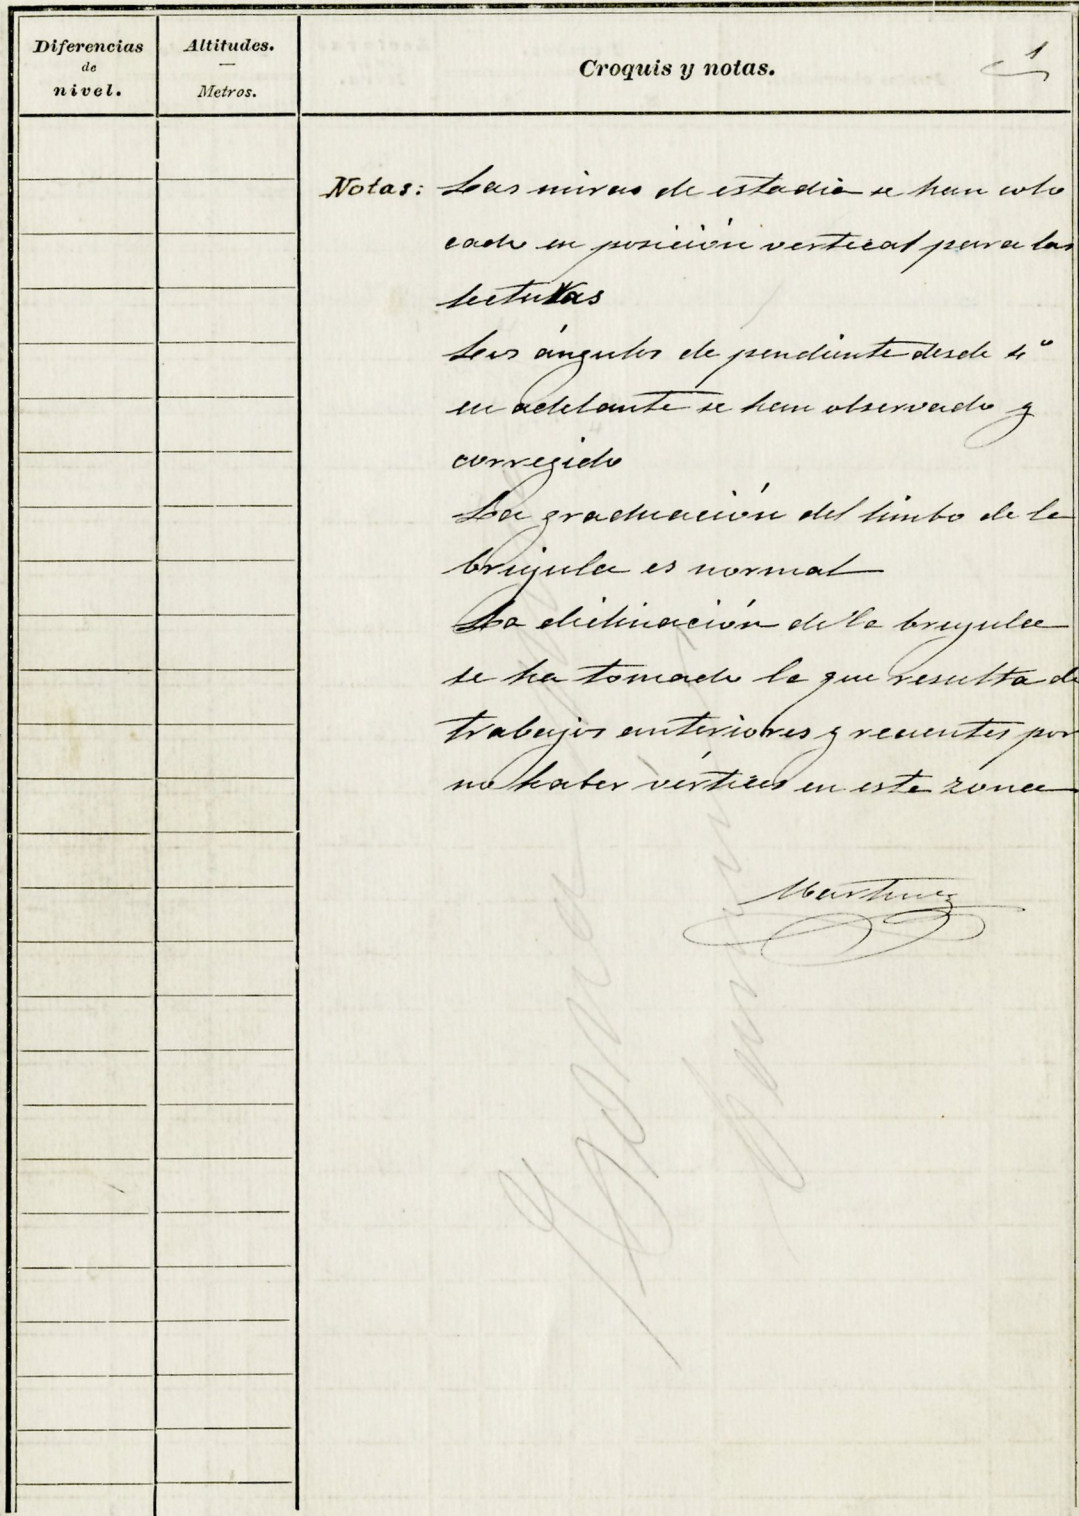 Diferencias
de
nivel.
Altitudes.
Metros.
Croquis y notas.
1
Notas: Las miras de estadia se han colo
cado en posición vertical para las
lecturas
Los ángulos de pendiente desde 4º
en adelante se han observado y
corregido
La graduación del limbo de la
brujula es normal
La declinación de la brujula
se ha tomado la que resulta de
trabajos anteriores y recientes por
no haber vértices en esta zona
Martinez